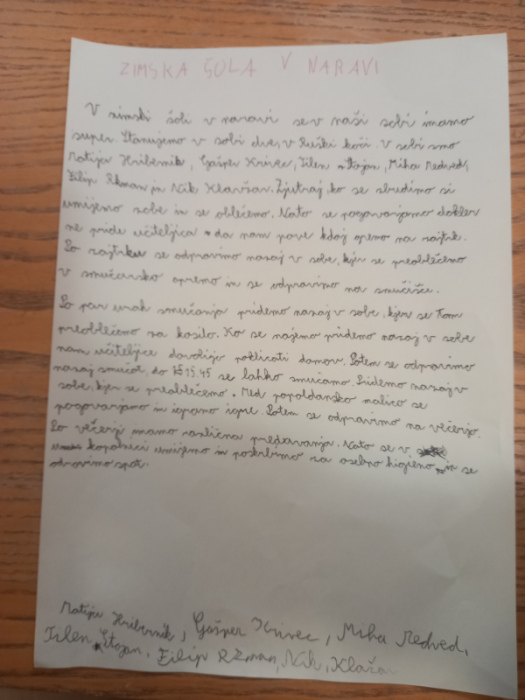 ZIMSKA ŠOLA V NARAVI
V zimski šoli v naravi se v naši sobi imamo
super. Stanujemo v sobi dve, v Ruški koči. V sobi smo
Matija Hribernik, Gašper Krivec, Tilen Stojan, Miha Medved,
Filip Ržman in Nik Klavžar. Zjutraj, ko se zbudimo si
umijemo zobe in se oblečemo. Nato se pogovarjamo dokler
ne pride učiteljica da nam pove kdaj gremo na zajtrk.
Po zajtrku se odpravimo nazaj v sobe, kjer se preoblečemo
v smučarsko opremo in se odpravimo na smučišče.
Po par urah smučanja pridemo nazaj v sobe, kjer se tam
preoblečemo za kosilo. Ko se najemo pridemo nazaj v sobe
nam učiteljice dovolijo poklicati domov. Potem se odpravimo
nazaj smučat, do 15.45 se lahko smučamo. Pridemo nazaj v
sobe, kjer se preoblečemo. Med popoldansko malico se
pogovarjamo in igramo igre. Potem se odpravimo na večerjo.
Po večerji imamo različna predavanja. Nato se v
kopalnici umijemo in poskrbimo za osebno higieno in se
odpravimo spat.
Matija Hribernik, Gašper Krivec, Miha Medved,
Tilen Stojan, Filip Ržman, Nik, Klavžar